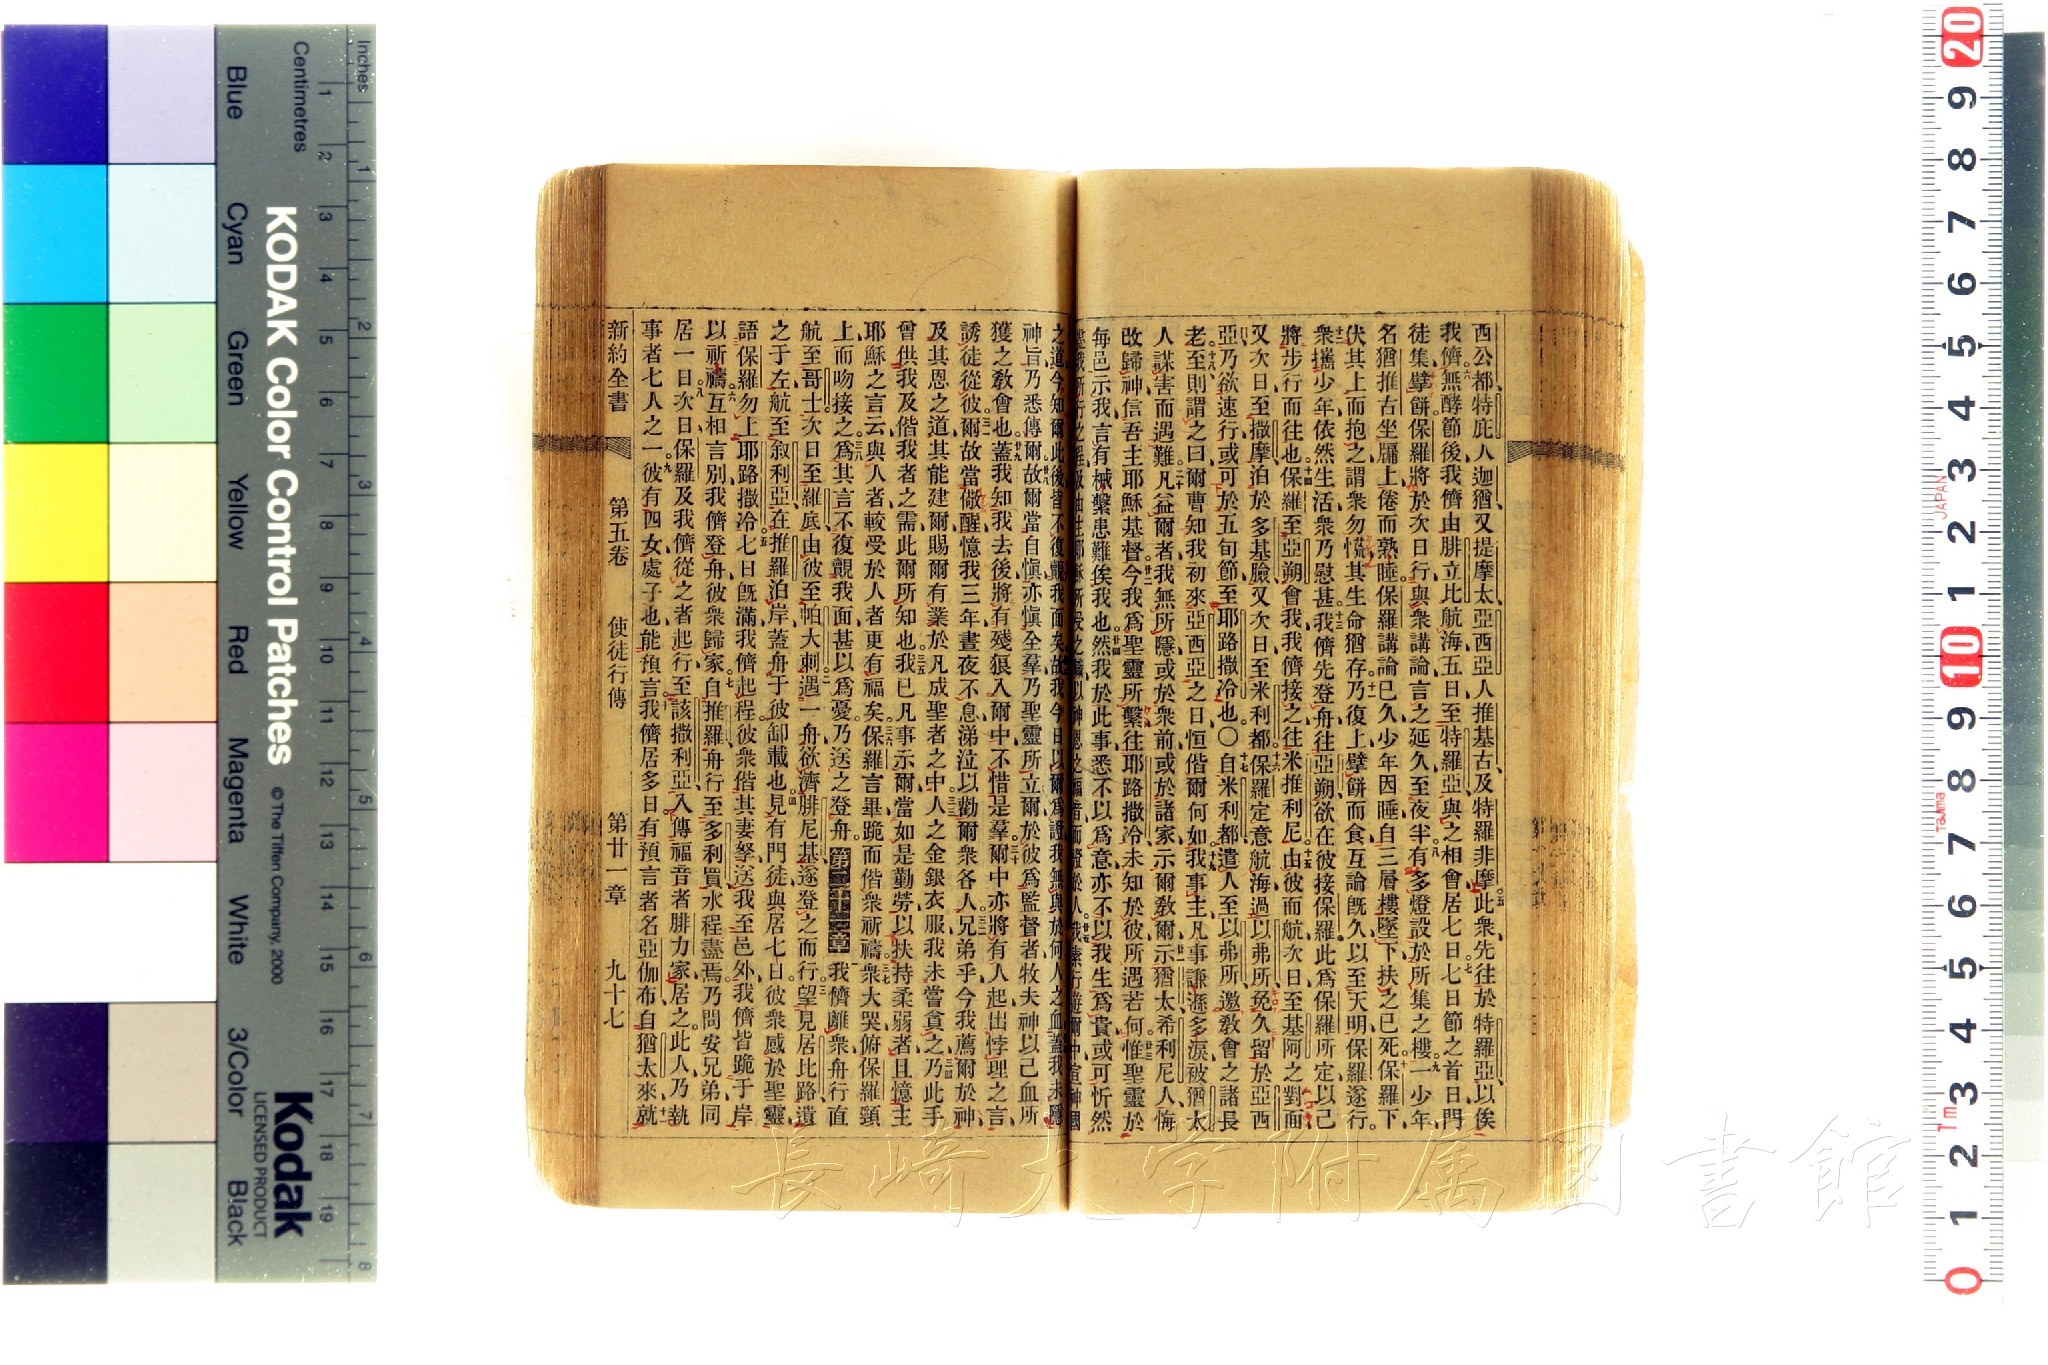 西公都特庇人迦猶又提摩太亞西亞人推基古及特羅非摩五此衆先往於特羅亞以俟
我儕六無酵節後我儕由腓立比航海五日至特羅亞與之相會居七日七七日節之首日門
徒集擘餅保羅將於次日行與衆講論言之延久至夜半八有多燈設於所集之樓九一少年
名猶推古坐牖上倦而熟睡保羅講論已久少年因睡自三層樓墜下扶之已死十保羅下
伏其上而抱之謂衆勿慌其生命猶存十一乃復上擘餅而食互論既久以至天明保羅遂行
十二衆攜少年依然生活衆乃慰甚十三我儕先登舟往亞朔欲在彼接保羅此爲保羅所定以己
將步行而往也十四保羅至亞朔會我我儕接之往米推利尼十五由彼而航次日至基阿之對面
又次日至撒摩泊於多基臉又次日至米利都十六保羅定意航海過以弗所免久留於亞西
亞乃欲速行或可於五旬節至耶路撒冷也〇十七自米利都遣人至以弗所邀敎會之諸長
老十八至則謂之曰爾曹知我初來亞西亞之日恒偕爾何如十九我事主凡事謙遜多淚被猶太
人謀害而遇難二十凡益爾者我無所隱或於衆前或於諸家示爾敎爾廿一示猶太希利尼人悔
改歸神信吾主耶穌基督廿二今我爲聖靈所繫往耶路撒冷未知於彼所遇若何廿三惟聖靈於
每邑示我言有械繫患難俟我也廿四然我於此事悉不以爲意亦不以我生爲貴或可忻然
之道今知爾此後皆不復覿我面矣故我今日以爾爲證我無與於何人之血蓋我未隱
神旨乃悉傳爾故廿八爾當自愼亦愼全羣乃聖靈所立爾於彼爲監督者牧夫神以己血所
獲之敎會也廿九蓋我知我去後將有殘狼入爾中不惜是羣三十爾中亦將有人起出悖理之言
誘徒從彼三一爾故當儆醒憶我三年晝夜不息涕泣以勸爾衆各人三二兄弟乎今我薦爾於神
及其恩之道其能建爾賜爾有業於凡成聖者之中三三人之金銀衣服我未嘗貪之三四乃此手
曾供我及偕我者之需此爾所知也三五我已凡事示爾當如是勤勞以扶持柔弱者且憶主
耶穌之言云與人者較受於人者更有福矣三六保羅言畢跪而偕衆祈禱三七衆大哭俯保羅頸
上而吻接之三八爲其言不復覿我面甚以爲憂乃送之登舟 第二十一章 一我儕離衆舟行直
航至哥士次日至羅底由彼至帕大剌二遇一舟欲濟腓尼基遂登之而行三望見居比路遺
之于左航至叙利亞在推羅泊岸蓋舟于彼卸載也四見有門徒與居七日彼衆感於聖靈
語保羅勿上耶路撒冷五七日既滿我儕起程彼衆偕其妻孥送我至邑外我儕皆跪于岸
以祈禱六互相言別我儕登舟彼衆歸家七自推羅舟行至多利買水程盡焉乃問安兄弟同
居一日八次日保羅及我儕從之者起行至該撒利亞入傳福音者腓力家居之此人乃執
事者七人之一九彼有四女處子也能預言十我儕居多日有預言者名亞伽布自猶太來十一就
新約全書 第五卷 使徒行傳 第廿一章 九十七
長崎大学附属図書館
Inches
Centimetres
KODAK Color Control Patches
© The Tiffen Company, 2000
Kodak
LICENSED PRODUCT
Blue Cyan Green Yellow Red Magenta White 3/Color Black
JAPAN
Tajima
Tm